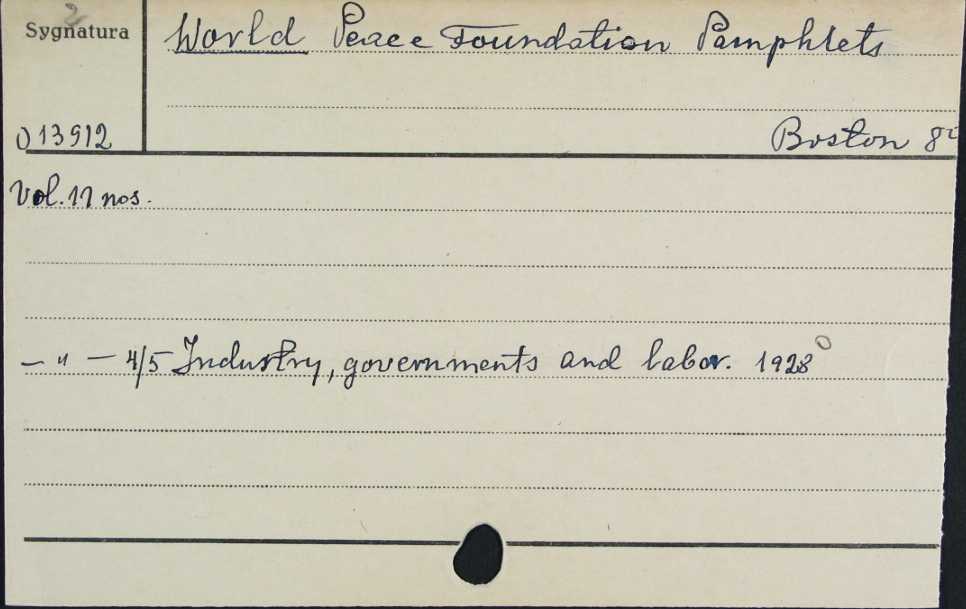 2
Sygnatura
World Peace Foundation Pamphlets
013912
Boston 8º
Vol. 11 nos.
— " — 4/5 Industry, governments and labor. 1928